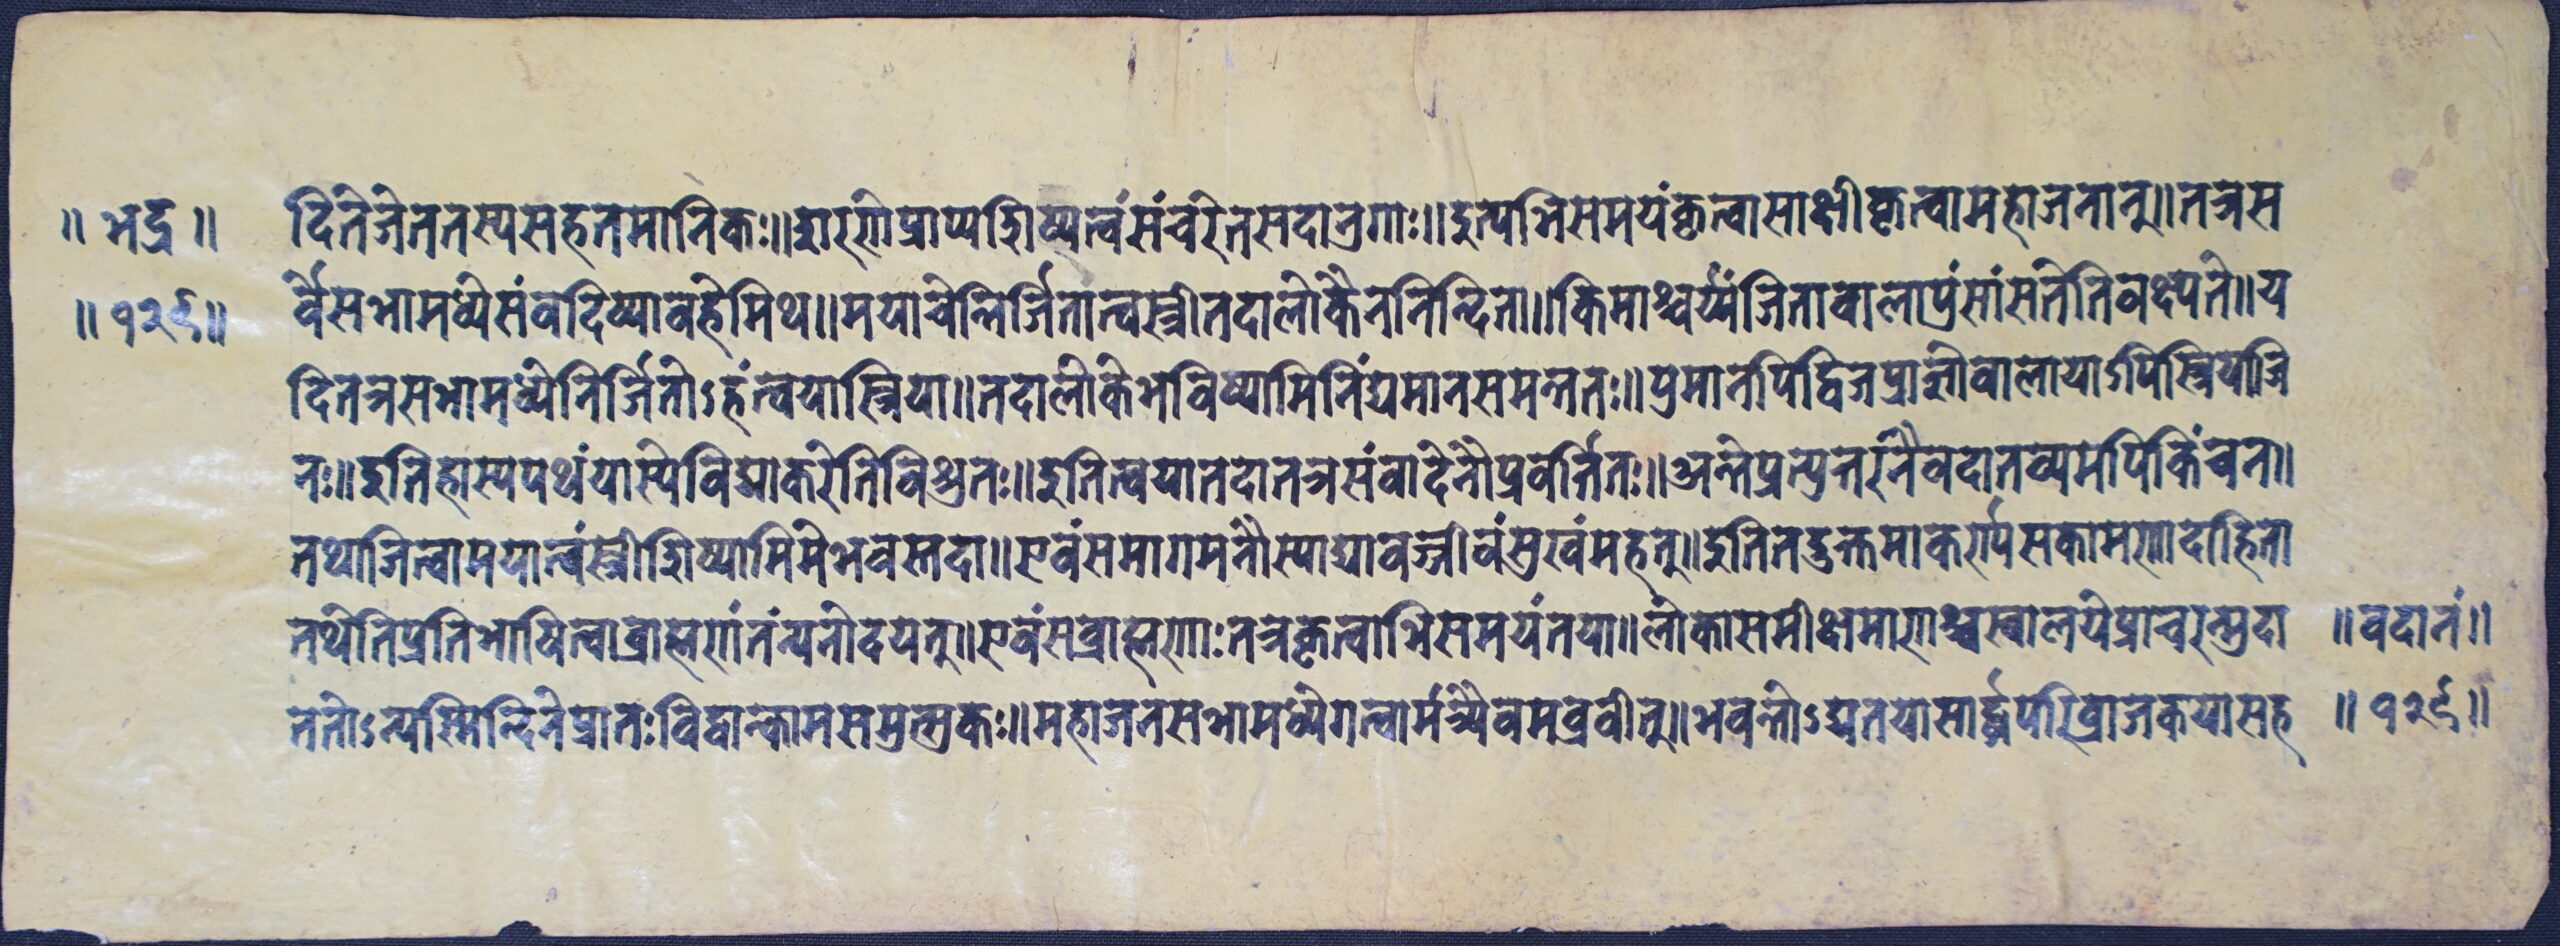 ॥ भद्र ॥ दितेजेतनस्यसहतमानिकः॥द्वारगीप्राप्यशिष्यत्वंसंचरेतसदानुगाः॥इत्यभिसमयंकृत्वासाक्षीकृत्वामहाजनान्॥तत्रस
॥ १२९॥ र्वैसभामध्येसंवदिष्यावहेमिथ॥मयाचेन्निर्जितात्वस्त्रीतदालोकैननिन्दिता॥किमाश्चर्य्यंजितावालापुंसांसतेतिवक्ष्यते॥य
दितत्रसभामध्येनिर्जितोऽहंत्वयास्त्रिया॥तदालोकेभविष्यामिनिंद्यमानसमन्ततः॥पुमानपिद्विजप्राज्ञोवालायाऽपिस्त्रियाजि
तः॥इतिहास्यपथंयास्येविद्याकरेतिविश्रुतः॥इतित्वयातदातत्रसंवादेनौप्रवर्त्तितः॥अन्तेप्रत्युत्तरंनैवदातव्यमपिकिंचन॥
तथाजित्वामयात्वंस्त्रीशिष्यामिमेभवस्तदा॥एवंसमागमनौस्याद्यावज्जीवंसुखंमहत्॥इतितदुक्तमाकर्ण्यसकामरागदाहिता
तथेतिप्रतिभाषित्वाब्राह्मणंतंन्यनोदयत्॥एवंसब्राह्मणाःतत्रकृत्वाभिसमयंतया॥लोकासमीक्षमाणश्चस्वालयेप्राचरन्मुदा ॥वदानं॥
ततोऽन्यस्मिन्दिनेप्रातःविद्वान्कामसमुत्सुकः॥महाजनसभामध्येगत्वार्मंत्र्यैवमब्रवीत्॥भवन्तोऽद्यतयासार्द्धंपरिव्राजकयासह ॥ १२९॥